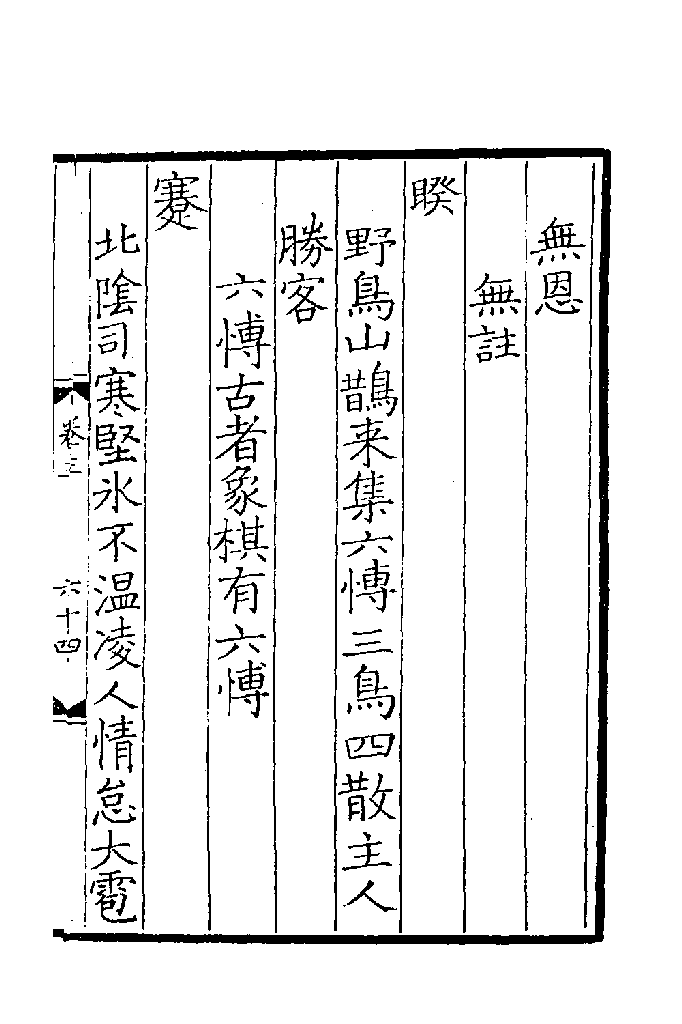 無恩
無註
睽
野鳥山鵲来集六愽三鳥四散主人
勝客
六愽古者象棋有六愽
蹇
北隂司寒堅氷不温凌人情怠大雹
卷三
六十四